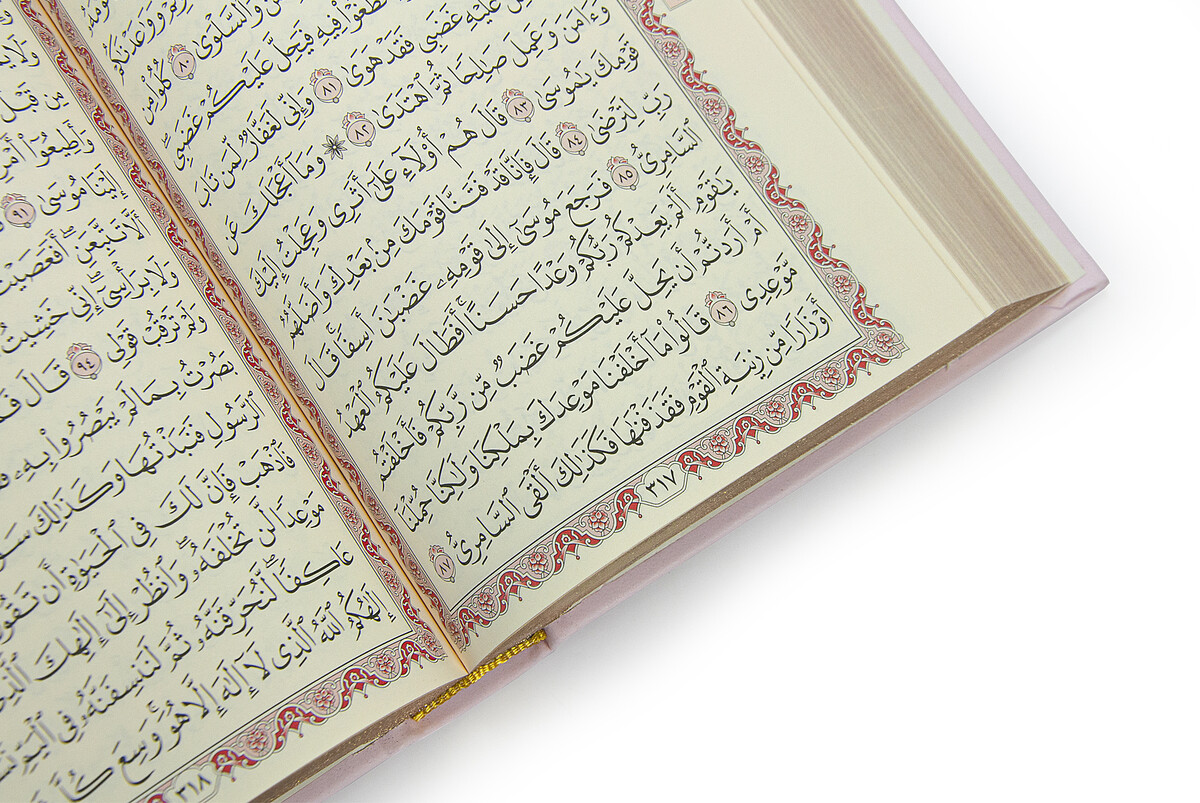 وَوَٰعَدْنَٰكُمْ
وَٱلسَّلْوَىٰ ٨٠ كُلُوا۟ مِن
تَطْغَوْا۟ فِيهِ فَيَحِلَّ عَلَيْكُمْ غَضَبِى ۖ
عَلَيْهِ غَضَبِى فَقَدْ هَوَىٰ ٨١ وَإِنِّى لَغَفَّارٌ لِّمَن تَابَ
وَءَامَنَ وَعَمِلَ صَٰلِحًا ثُمَّ ٱهْتَدَىٰ ٨٢ ۞ وَمَآ أَعْجَلَكَ عَن
قَوْمِكَ يَٰمُوسَىٰ ٨٣ قَالَ هُمْ أُو۟لَآءِ عَلَىٰٓ أَثَرِى وَعَجِلْتُ إِلَيْكَ
رَبِّ لِتَرْضَىٰ ٨٤ قَالَ فَإِنَّا قَدْ فَتَنَّا قَوْمَكَ مِنۢ بَعْدِكَ وَأَضَلَّهُمُ
ٱلسَّامِرِىُّ ٨٥ فَرَجَعَ مُوسَىٰٓ إِلَىٰ قَوْمِهِۦ غَضْبَٰنَ أَسِفًا ۚ قَالَ
يَٰقَوْمِ أَلَمْ يَعِدْكُمْ رَبُّكُمْ وَعْدًا حَسَنًا ۚ أَفَطَالَ عَلَيْكُمُ ٱلْعَهْدُ
أَمْ أَرَدتُّمْ أَن يَحِلَّ عَلَيْكُمْ غَضَبٌ مِّن رَّبِّكُمْ فَأَخْلَفْتُم
مَّوْعِدِى ٨٦ قَالُوا۟ مَآ أَخْلَفْنَا مَوْعِدَكَ بِمَلْكِنَا وَلَٰكِنَّا حُمِّلْنَآ
أَوْزَارًا مِّن زِينَةِ ٱلْقَوْمِ فَقَذَفْنَٰهَا فَكَذَٰلِكَ أَلْقَى ٱلسَّامِرِىُّ ٨٧
٣١٧
مِن قَبْلُ
وَأَطِيعُوٓا۟ أَمْرِى
إِلَيْنَا مُوسَىٰ ٩١
أَلَّا تَتَّبِعَنِ ۖ أَفَعَصَيْتَ
وَلَا بِرَأْسِىٓ ۖ إِنِّى خَشِيتُ
وَلَمْ تَرْقُبْ قَوْلِى ٩٤ قَالَ فَمَا
بَصُرْتُ بِمَا لَمْ يَبْصُرُوا۟ بِهِۦ
ٱلرَّسُولِ فَنَبَذْتُهَا وَكَذَٰلِكَ
فَٱذْهَبْ فَإِنَّ لَكَ فِى ٱلْحَيَوٰةِ أَن تَقُولَ
مَوْعِدًا لَّن تُخْلَفَهُۥ ۖ وَٱنظُرْ إِلَىٰٓ إِلَٰهِكَ ٱلَّذِى
عَاكِفًا ۖ لَّنُحَرِّقَنَّهُۥ ثُمَّ لَنَنسِفَنَّهُۥ فِى ٱلْيَمِّ
إِلَٰهُكُمُ ٱللَّهُ ٱلَّذِى لَآ إِلَٰهَ إِلَّا هُوَ ۚ وَسِعَ كُلَّ
٣١٨